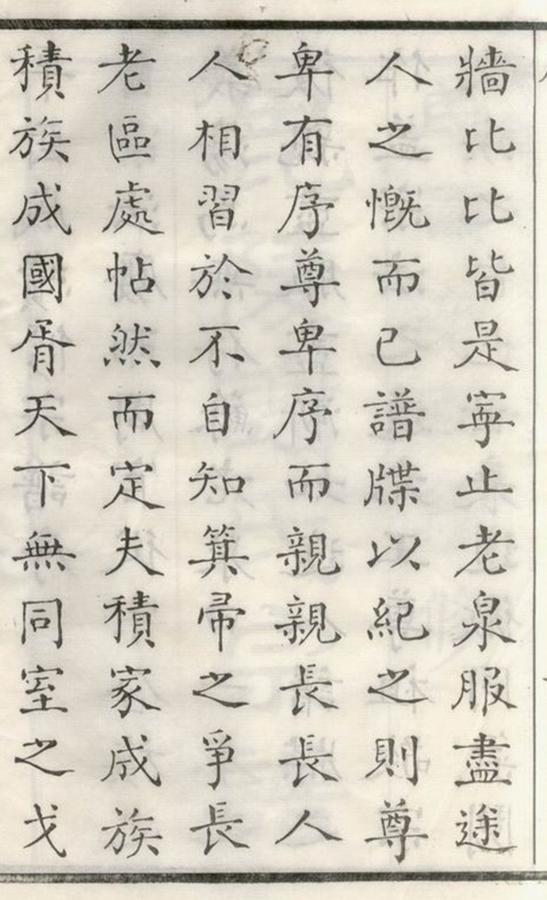 牆比比皆是寜止老泉服盡途
人之慨而已譜牒以紀之則尊
卑有序尊卑序而親親長長人
人相習於不自知箕帚之爭長
老區處帖然而定夫積家成族
積族成國胥天下無同室之戈